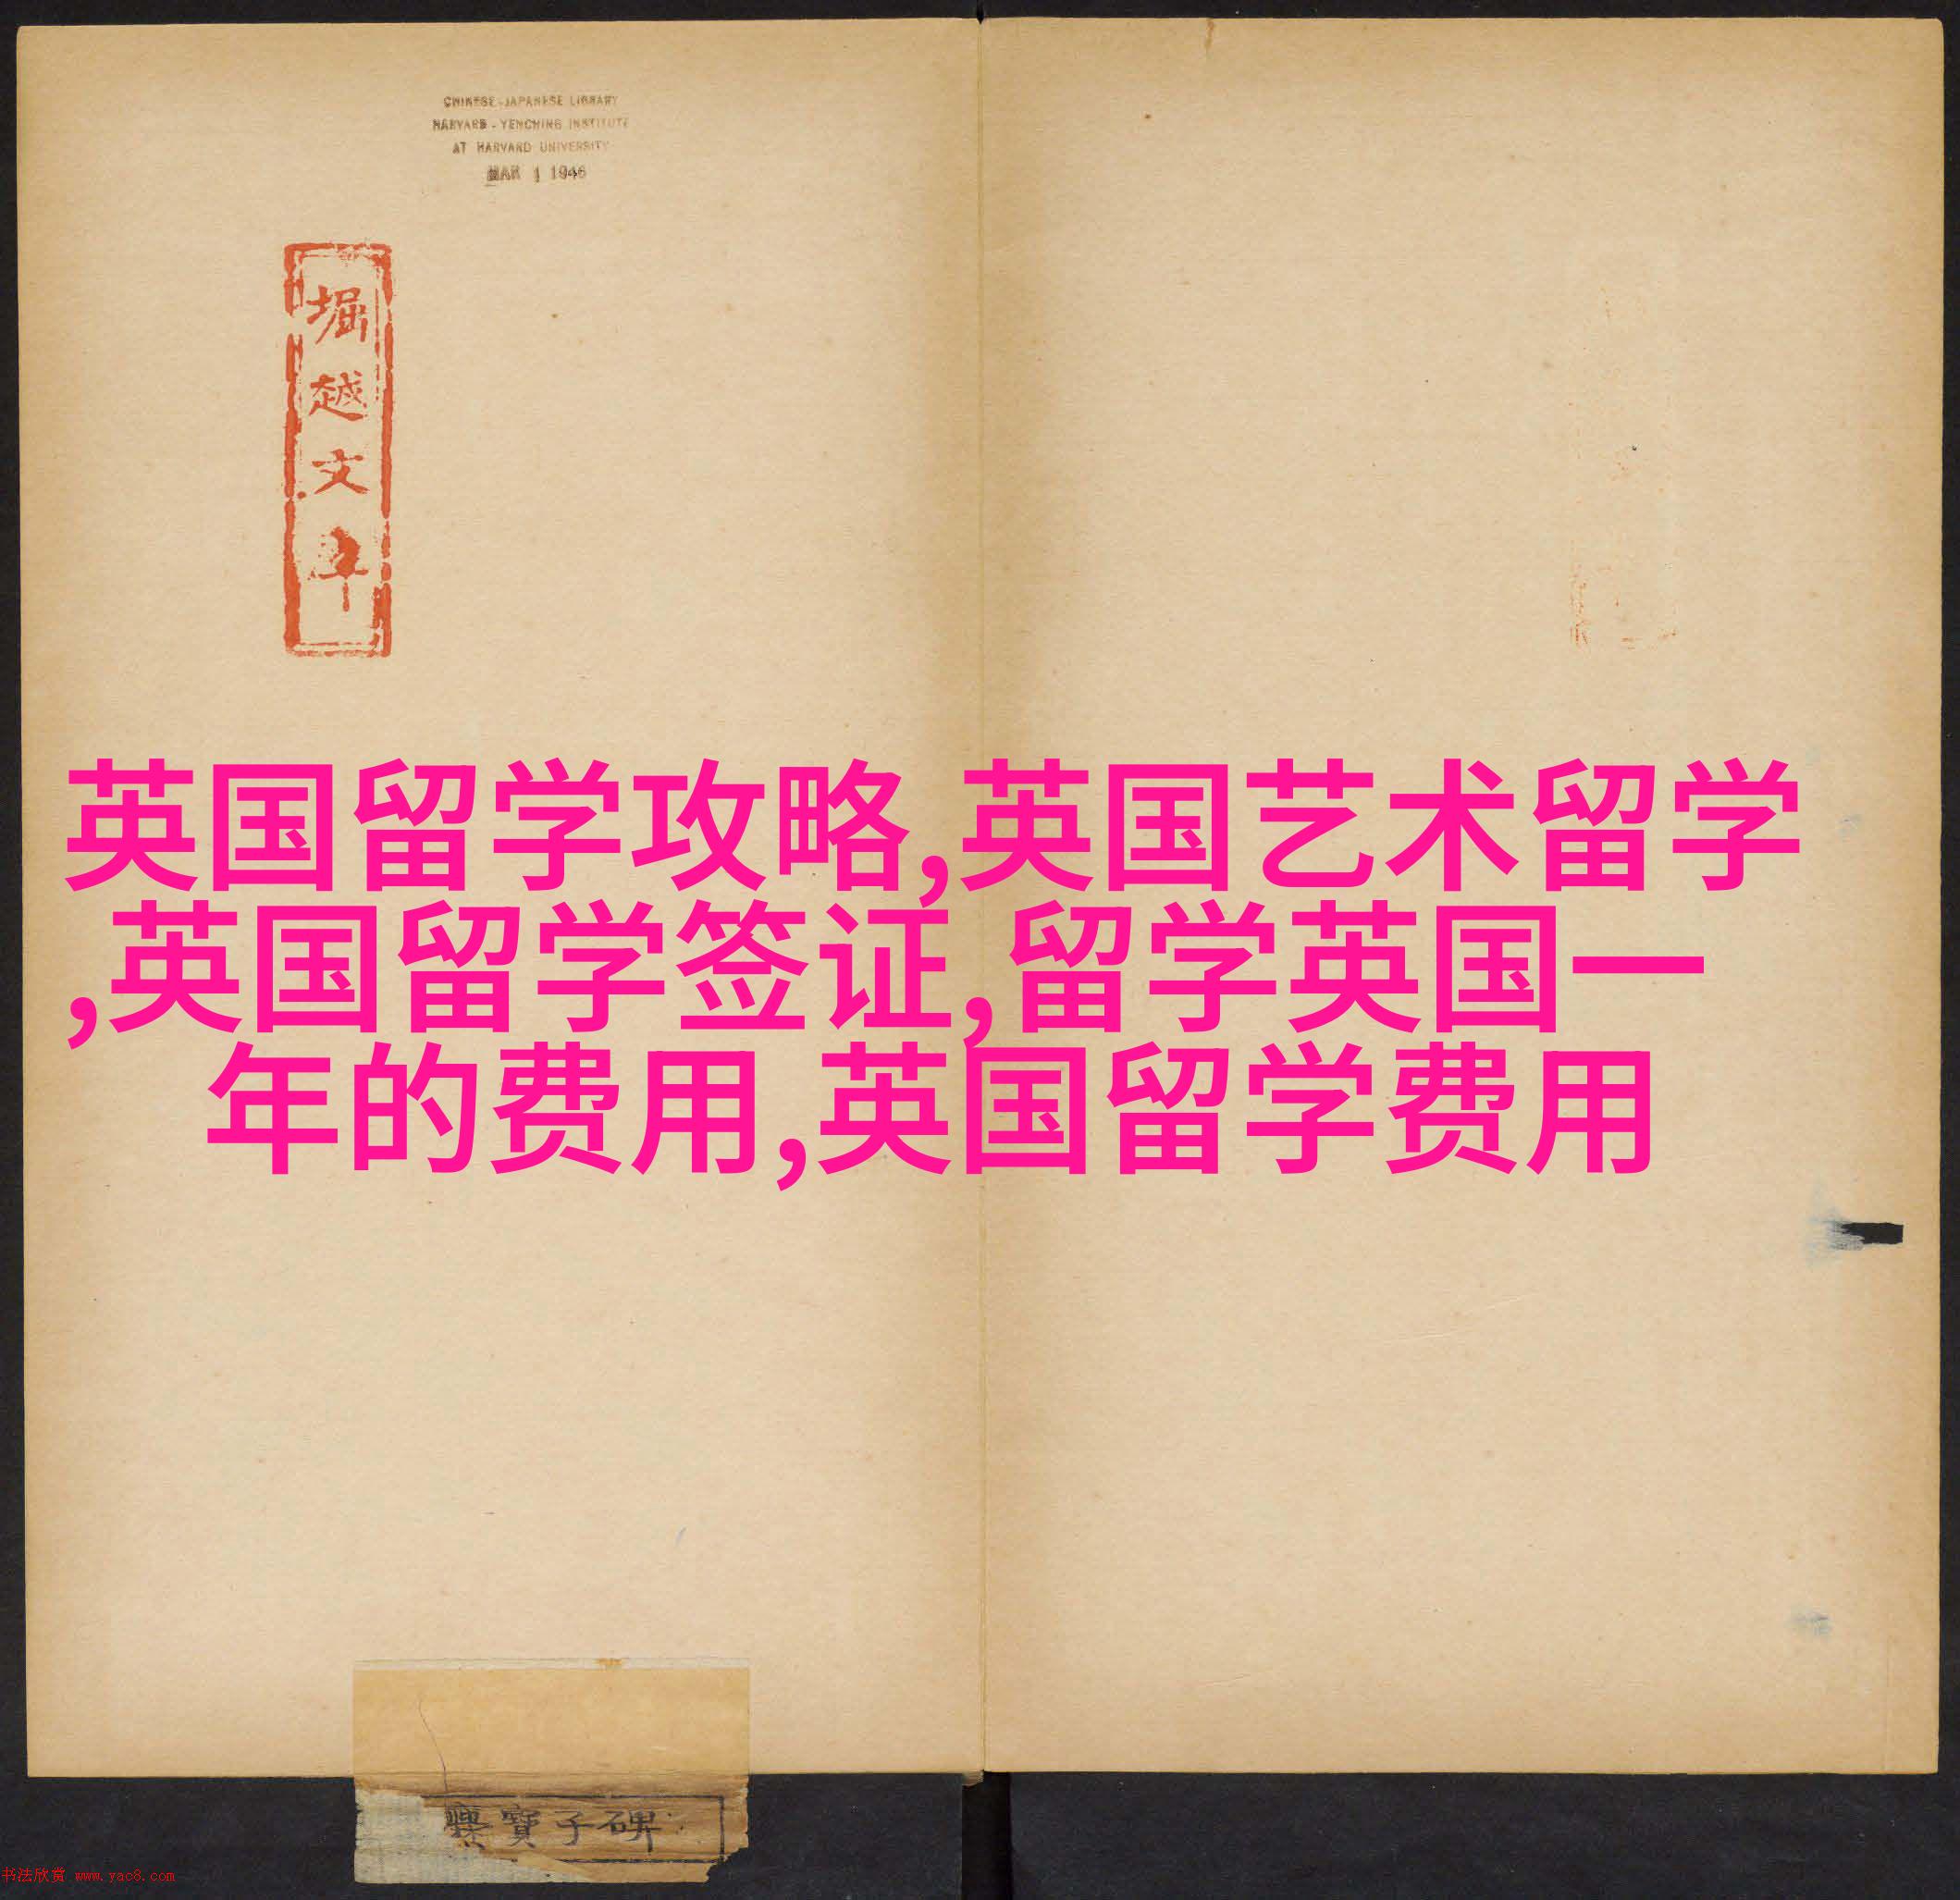 CHINESE-JAPANESE LIBRARY
HARVARD-YENCHING INSTITUTE
AT HARVARD UNIVERSITY
MAR 1 1946
堀
越
文
英国留学攻略,英国艺术留学
,英国留学签证,留学英国一
年的费用,英国留学费用
爨寶子碑
书法欣赏 www.yac8.com